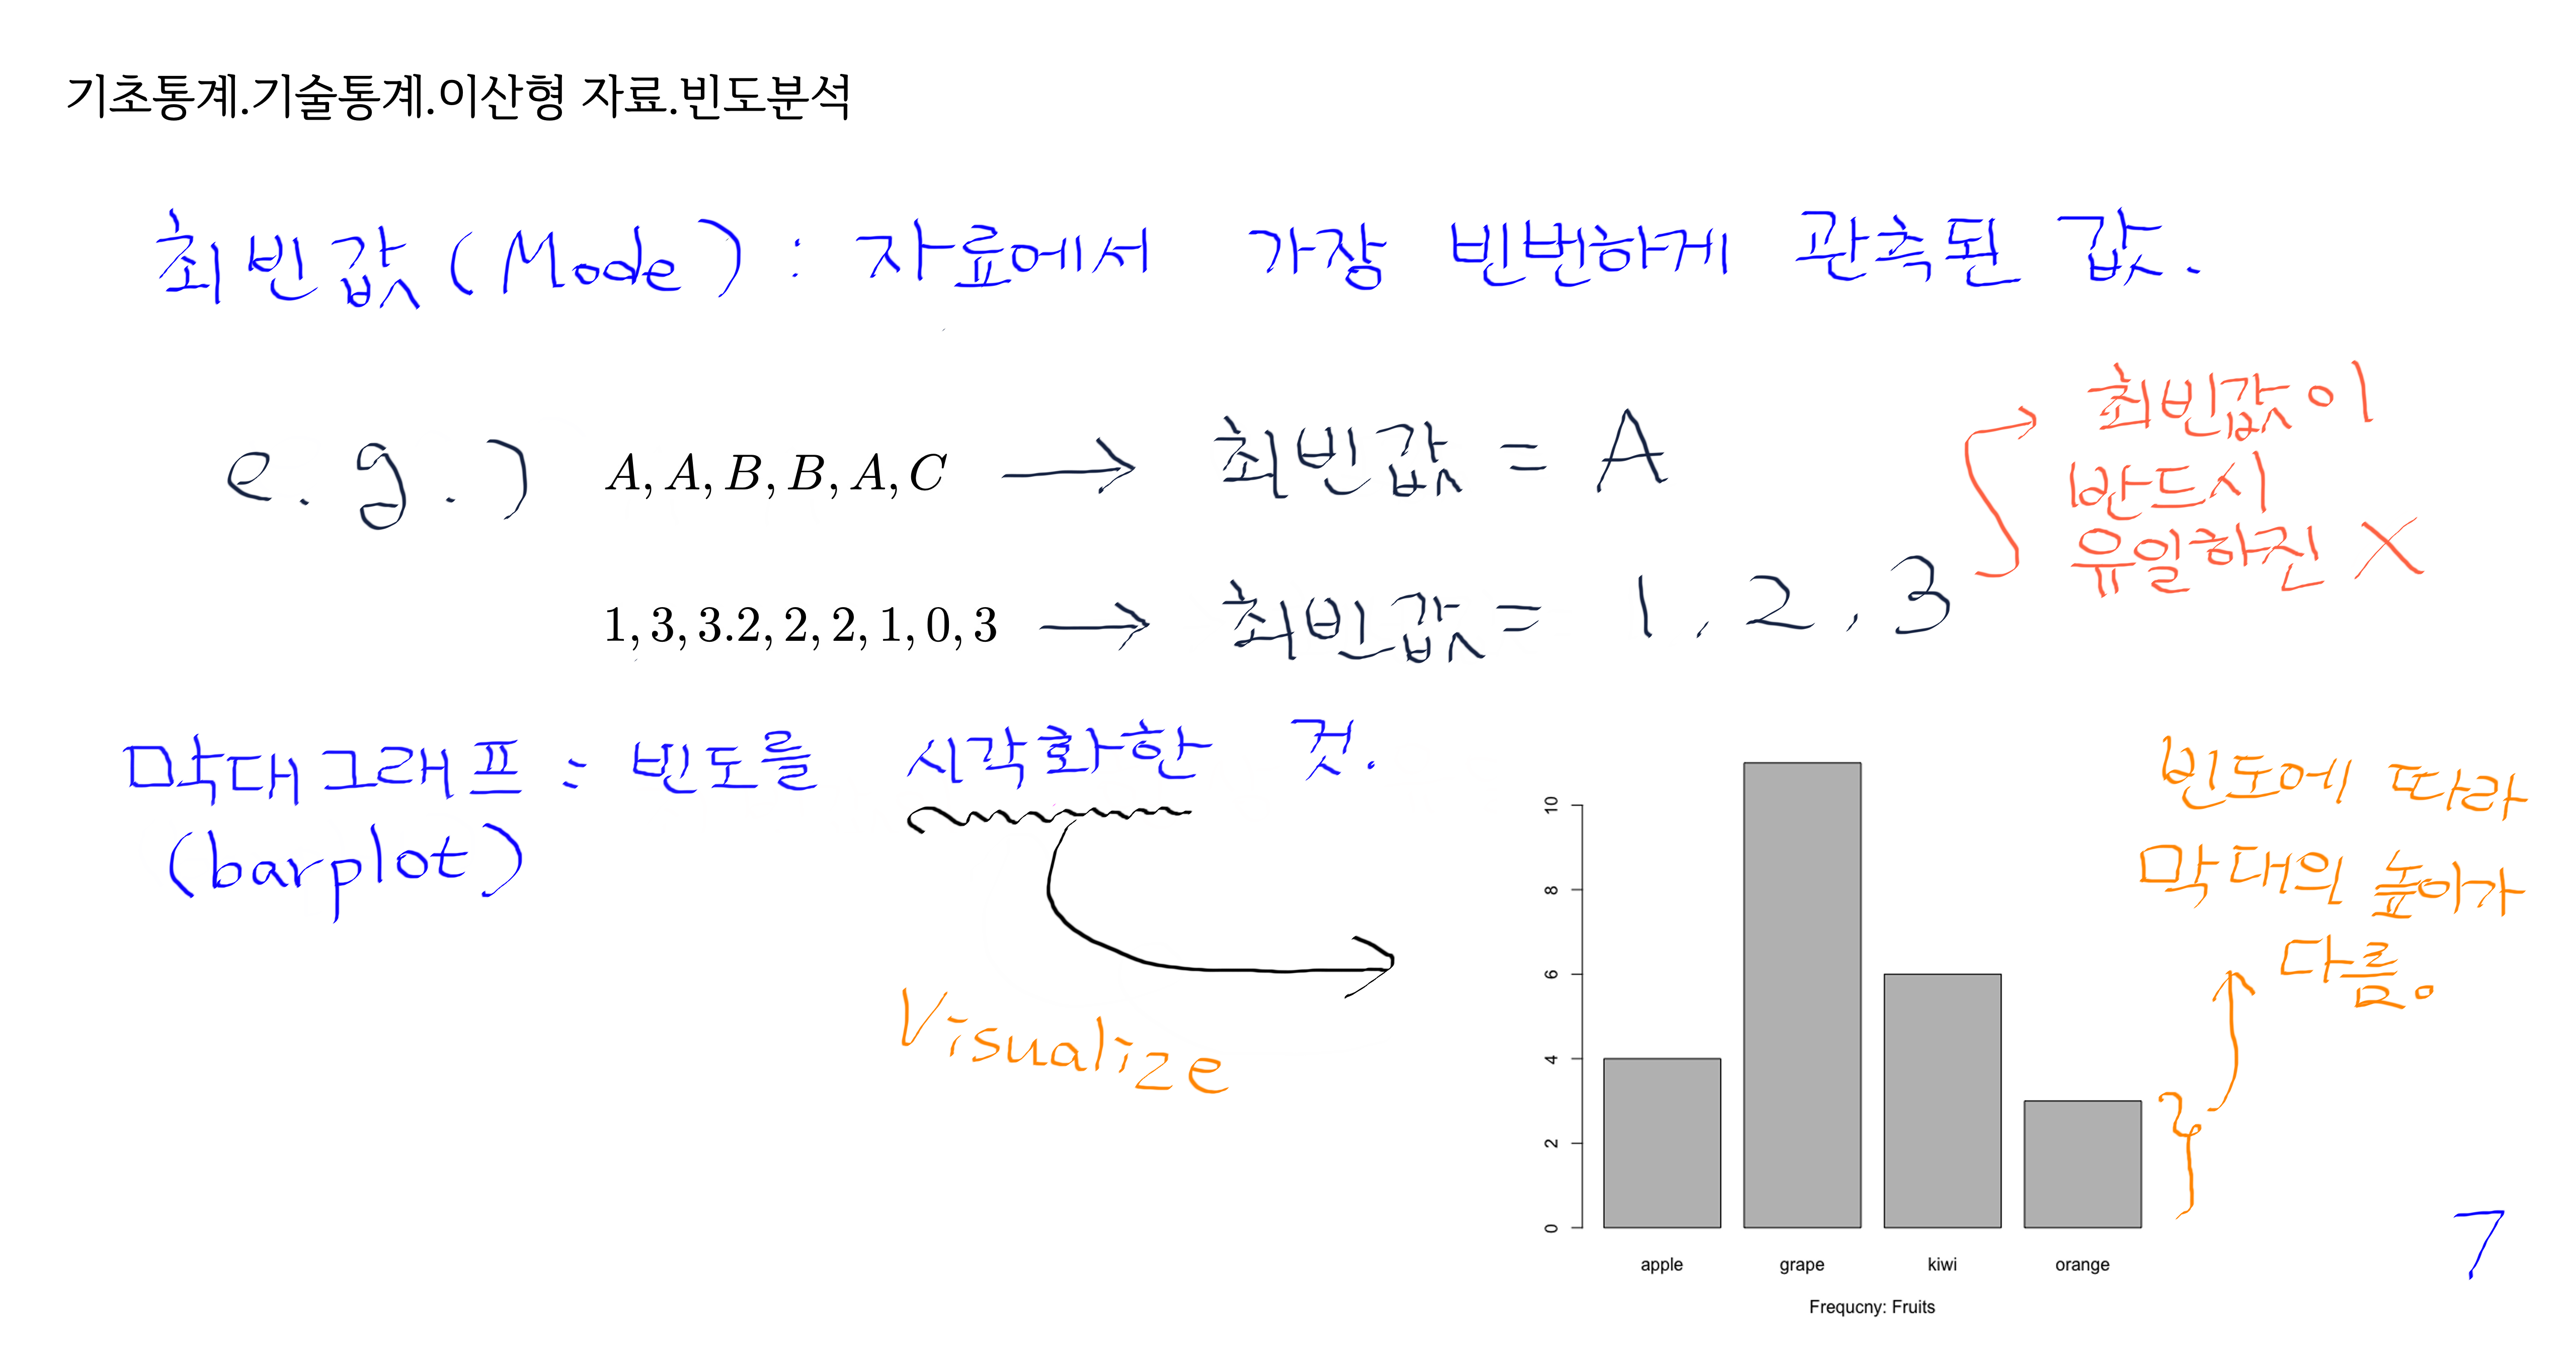 기초통계.기술통계.이산형 자료.빈도분석
최빈값 (Mode) : 자료에서 가장 빈번하게 관측된 값.
e.g.) A, A, B, B, A, C → 최빈값 = A
1, 3, 3.2, 2, 2, 1, 0, 3 → 최빈값 = 1, 2, 3
최빈값이
반드시
유일하진 X
막대그래프 = 빈도를 시각화한 것.
(barplot)
Visualize
빈도에 따라
막대의 높이가
다름。
10
8
6
4
2
0
apple grape kiwi orange
Frequcny: Fruits
7